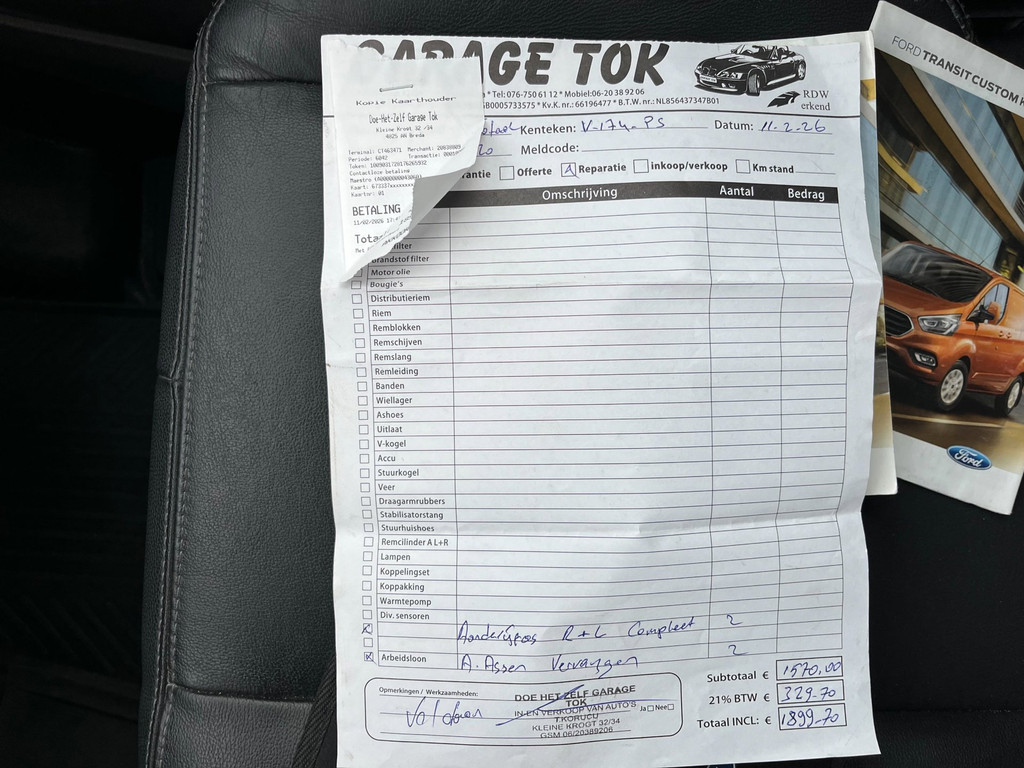 GARAGE TOK
* Tel: 076-750 61 12 * Mobiel: 06-20 38 92 06
GB0005733575 * Kv.K. nr.: 66196477 * B.T.W. nr.: NL856437347B01
RDW
erkend
Kenteken: V-174-PS Datum: 11-2-26
20 Meldcode:
rantie Offerte Reparatie inkoop/verkoop Km stand
Omschrijving Aantal Bedrag
Kopie Kaarthouder
Doe-Het-Zelf Garage Tok
Kleine Krogt 32 /34
4825 AN Breda
Terminal: CT463471 Merchant:
Periode: 6042 Transactie:
Token:
Contactloze betaling
Maestro
Kaart: 673337xxxxxxxx
Kaartnr: 01
BETALING
11/02/2026
Tota
filter
Brandstof filter
Motor olie
Bougie's
Distributieriem
Riem
Remblokken
Remschijven
Remslang
Remleiding
Banden
Wiellager
Ashoes
Uitlaat
V-kogel
Accu
Stuurkogel
Veer
Draagarmrubbers
Stabilisatorstang
Stuurhuishoes
Remcilinder A L+R
Lampen
Koppelingset
Koppakking
Warmtepomp
Div. sensoren
R+L Compleet 2
Arbeidsloon A. Assen Vervangen 2
Subtotaal € 1570,00
21% BTW € 329-70
Totaal INCL: € 1899-70
Opmerkingen / Werkzaamheden:
Voldaan
Ja Nee
DOE HET ZELF GARAGE
TOK
IN-EN VERKOOP VAN AUTO'S
T.KORUCU
KLEINE KROGT 32/34
GSM 06/20389206
FORD TRANSIT CUSTOM
Ford